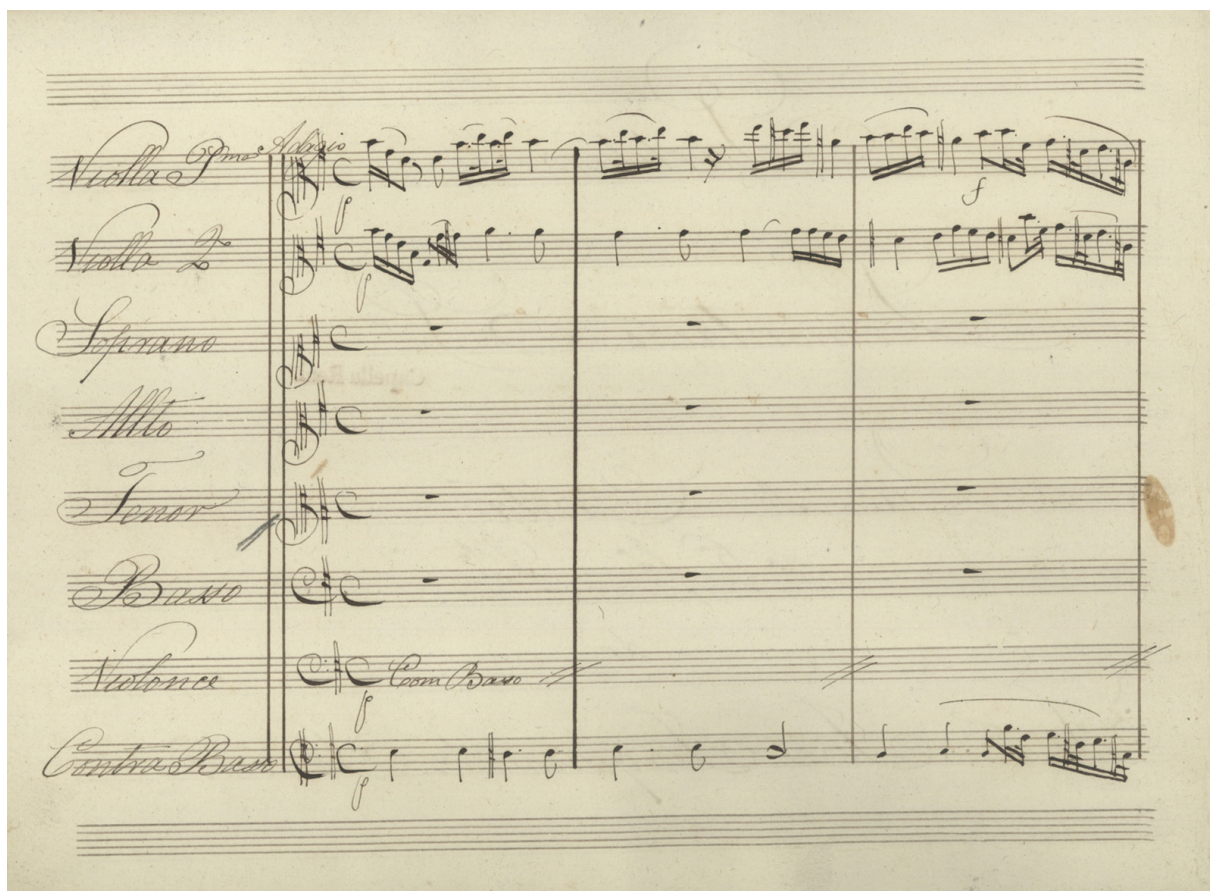 Violla P.mo Adagio
p
f
Violla 2
p
Soprano
Allto
Tenor
Basso
Violonce
Com Basso
p
Contra Basso
p